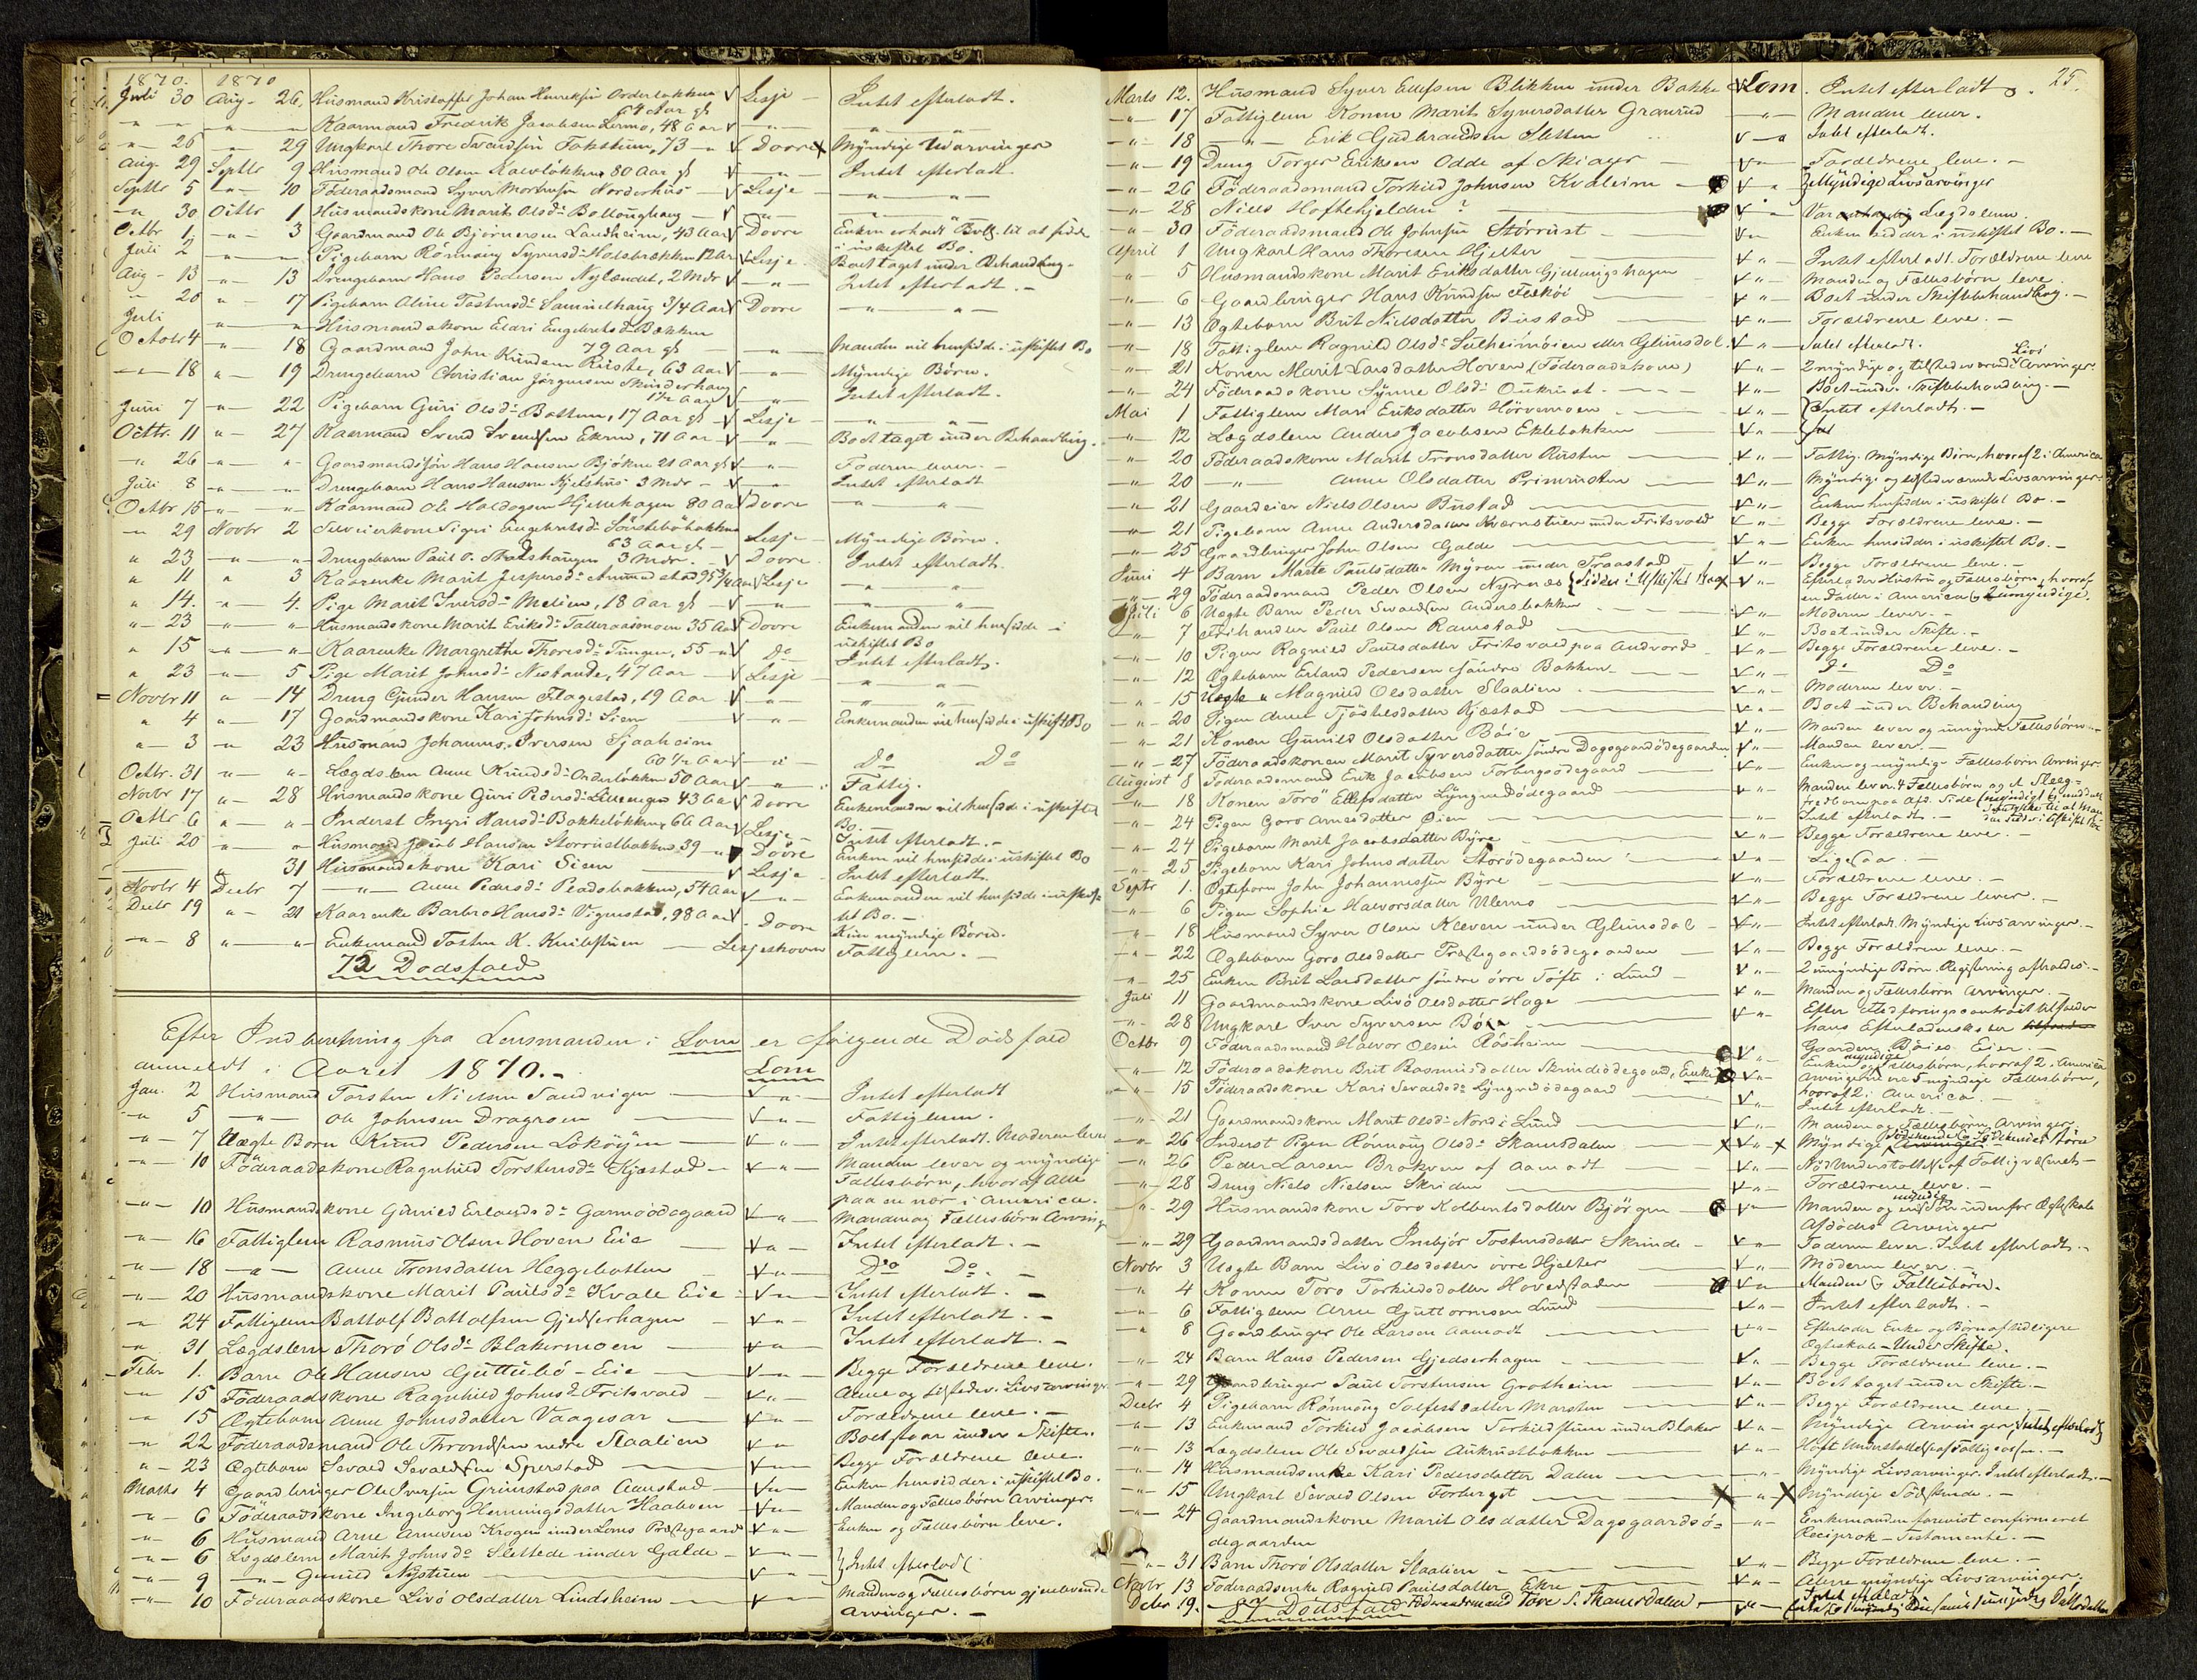 1870. 1870
Juli 30 Aug- 26. Husmand Kristoffer Johan Henriksen Orderløkken V Lesje - Intet efterladt.
64 Aar gl
" " " " Kaarmand Fredrik Jacobsen Lermo, 48 Aar V -"- " "
-"- 26 -"- 29 Ungkarl Thore Svendsen Fokstuen, 73 -"- V Dovre X Myndige Udarvinger
Aug- 29 Septbr 9 Husmand Ole Olsen Kalvløkken 80 Aar gl V -"- Intet efterladt.
Septbr 5 -"- 10 Föderaadsmand Syver Mortensen Norderhus - V Lesje - " "
-"- 30 Octbr 1 Husmandskone Marit Olsd: Bollonghaug - V -"- " "
Octbr 1. -"- 3 Gaardmand Ole Björnersen Landheim, 43 Aar V Dovre Enken erholdt Bevllg. til at sidde
i uskiftet Bo.
Juli 2 " " Pigebarn Rönnaug Syversd: Holsbrækken 12 Ar V Lesje - Boet taget under Behandling.
Aug - 13 -"- 13 Drengebarn Hans Pedersen Nylændet, 2 Mdr V -"- Intet efterladt. -
" 20 " 17 Pigebarn Aline Tostensd: Samuelhaug 3/4 Aar V Dovre " "
Juli " " Husmandskone Eldri Engebretsd: Bækken
79 Aar gl - " - Manden vil hensidde i uskiftet Bo
October 4 " 18 Gaardmand John Knudsen Rusten, 63 Aar V -"- Myndige Børn.
-"- 18 " 19 Drengebarn Christian Jörgensen Skinderhaug
1 1/2 Aar V -"- Intet efterladt.
Juni 7 -"- 22 Pigebarn Guri Olsd: Bottum, 17 Aar gl - V Lesje - " "
Octbr. 11 " 27 Kaarmand Svend Svendsen Ekren, 71 Aar - V -"- Boet taget under Behandling.
-"- 26 -"- " Gaardmandssøn Hans Hansen Bjökne 21 Aar gl V -"- Faderen lever. -
Juli 8 -"- " Drengebarn Hans Hansen Nystuhus 3 Mdr - V -"- Intet efterladt
Octbr 15 -"- " Kaarmand Ole Haldogsen Hjellehagen 80 Aar V Dovre " "
-"- 29 Novbr 2 Selveierkone Sigri Engebretsd: Sönstebøbakken
63 Aar gl - Lesje - Myndige Börn.
" 23 -"- " Drengebarn Paul O. Stadshaugen 3 Mdr. V Dovre. Intet efterladt.
" 11 " 3 Kaarenke Marit Jespersd: Aumeslad 95 3/4 Aar V Lesje " "
" 14. -"- 4. Pige Marit Iversd: Melien, 18 Aar gl - V -"- " "
" - 23 -"- " Husmandskone Marit Eriksd: Talleraasmoen 35 Aar V Dovre Enkemanden vil hensidde i
uskiftet Bo
" 15 -"- " Kaarenke Margrethe Thoresd: Tungen, 55 -"- V Do
" 23 -"- 5 Pige Marit Johnsd: Nestande, 47 Aar - V Lesje - Intet efterladt.
= Novbr 11 " 14 Dreng Gunder Hansen Flagestad, 19 Aar V -"- " "
" 4 " 17 Gaardmandskone Kari Johnsd: Siem V " Enkemanden vil hensidde i uskiftet Bo
" - 3 -"- 23 Husmand Johannes Iversen Sjaaheim
60 1/2 Aar V -"- Do Do
Octbr. 31 " - " Lægdslem Anne Knudsd: Onderløkken 50 Aar V -"- Fattig.
Novbr 17 " - 28 Husmandskone Guri Pedersd: Lillemoen 43 Aar V Dovre Enkemanden vil hensidde i uskiftet
Bo.-
Octbr 6 " " Inderst Ingri Hansd: Bakkeløkken, 66 Aar V Lesje - Intet efterladt. -
Juli 20 " " Husmand Jacob Hansen Storruelbakken 39 -"- V Dovre Enken vil hensidde i uskiftet Bo
" 31 Husmandskone Kari Siem V Lesje - Intet efterladt.
Novbr 4 Decbr 7 -"- Anne Pedersd: Pladsbakken, 54 Aar V -"- Enkemanden vil hensidde i uskif-
tet Bo. -
Decbr 19 " - 21 Kaarenke Barbro Hansd: Vigenstad, 98 Aar V - Dovre Kun myndige Börn.
-"- 8 " " Enkemand Tosten K. Knubstuen - Lesjeskoven Fattiglem. -
72 Dodsfald
Efter Indberetning fra Lensmanden i Lom er følgende Dödsfald
anmeldt i Aaret 1870.- Lom
Jan. 2 Husmand Torsten Nielsen Sandvigen - V " - Intet efterladt
-"- 5 -"- Ole Johnsen Dragøen - V " - Fattiglem.
-"- 7 Uægte Barn Knud Pedersen Løkøyen - V " - Intet efterladt. Moderen lever
-"- 10 Föderaadskone Ragnhild Torstensd: Kjæstad - V " - Manden lever og myndige
Fællesbörn, hvoraf alle
paa en nær i America.
-"- 10 Husmandskone Gunild Erlandsd: Garmoödegaard V " - Manden og Fællesbörn Arvinger
-"- 16 Fattiglem Rasmus Olsen Hoven Eie - V " - Intet efterladt. -
-"- 18 -"- Anne Tronsdatter Heggebotten - V " - Do Do. -
-"- 20 Husmandskone Marit Paulsd: Kvale Eie V " - Intet efterladt. -
-"- 24 Fattiglem Battolf Battolfsen Gjedserhagen - V " - Intet efterladt. -
-"- 31 Lægdslem Thorø Olsd: Blakermoen - V " - Intet efterladt. -
Febr 1. Barn Ole Hansen Guttubø - Eie - V " - Begge Forældrene leve.
-"- 15 Föderaadskone Ragnhild Johnsd: Fritsvold - V " Alene og tilstedev. Livsarvinger
-"- 15 Ægtebarn Anne Johnsdatter Vaagesar - V " - Forældrene leve. -
-"- 22 Föderaadsmand Ole Throndsen nedre Staalien V " - Boet staar under Skifte.
-"- 23 Ægtebarn Sevald Sevaldsen Sperstad - V " - Begge Forældrene leve.
Marts 4 Gaardbruger Ole Iversen Grimstad paa Aanstad - V " - Enken hensidder i uskiftet Bo.
-"- 6 Föderaadskone Ingeborg Henningsdatter Haaboen V " - Manden og Fællesbörn Arvinger.
-"- 6 Husmand Arne Arnesen Krogen under Loms Præstegaard V " - Enken og Fællesbörn leve.
-"- 6 Lægdslem Marit Johnsd: Slettede under Galde - V " - } Intet efterladt
-"- 9 -"- Gunild Nystuen - V " -
-"- 10 Föderaadskone Livø Olsdatter Lindsheim - V " - Manden og Fællesbörn gjenlevende
Arvinger. -
25.
Marts 12. Husmand Syver Ellefsen Blikken under Bakke V Lom. Intet efterladt.
-"- 17 Fattiglem Konen Marit Syversdatter Gravrud -"- Manden lever.
-"- 18 -"- Erik Gudbrandsen Sletten V - " Intet efterladt.
-"- 19 Dreng Torger Eriksen Odde af Skiager V " - Forældrene leve. -
-"- 26 Föderaadsmand Torkild Johnsen Kvaleim - V - " } Myndige Livsarvinger
-"- 28 Niels Hoftekjelden ? - V - " Var Lægdslem.
-"- 30 Föderaadsmand Ole Johnsen Störrust - V " - Enken sidder i uskiftet Bo. -
April 1 Ungkarl Hans Thoresen Hjelter - V " - Intet efterladt. Forældrene leve
" 5 Husmandskone Marit Eriksdatter Gjeilvigshagen V " - Manden og Fællesbörn leve
-"- 6 Gaardbruger Hans Knudsen Flækøi - V " - Boet under Skiftebehandling. -
-"- 13 Ægtebarn Brit Nielsdatter Bustad - V " - Forældrene leve. -
-"- 18 Fattiglem Ragnild Olsd: Sulheimöien eller Glimsdal V " - Intet efterladt.
-"- 21 Konen Marit Larsdatter Hoven (Föderaadskone) V " - 2 myndige og tilstedeværende Livs Arvinger
-"- 24 Föderaadskone Synne Olsd: Aukrust - V " - Boet under Skiftebehandling. -
Mai 1 Fattiglem Mari Eriksdatter Hörvemoen - V " - } Intet efterladt. -
-"- 12 Lægdslem Anders Jacobsen Eklebakken - V " -
-"- 20 Föderaadskone Marit Tronsdatter Rusten - V " - Fattig. Myndige Börn, hvoraf 2 i America
-"- 20 -"- Anne Olsdatter Primrusten - V " - Myndige og tilstedeværende Livsarvinger
-"- 21 Gaardeier Niels Olsen Bustad - V " - Enken hensidder i uskiftet Bo. -
-"- 21 Pigebarn Anne Andersdatter Kværnstuen under Fritsvold V " - Begge Forældrene leve. -
-"- 25 Gaardbruger John Olsen Galde - V " - Enken hensidder i uskiftet Bo. -
Juni 4 Barn Marte Paulsdatter Myren under Traastad - V " - Begge Forældrene leve. -
-"- 29 Föderaadsmand Peder Olsen Nyrnæs { Sidder i Uskiftet Bo X V " - Efterlader Hustru og Fællesbörn, hvoraf
en datter i America og 2 umyndige.
Juli 6 Uægte Barn Peder Sevaldsen Andersbakken - V " - Moderen lever. -
" 7 Frihandler Paul Olsen Ramstad - V " - Boet under Skifte. -
-"- 10 Pigen Ragnild Paulsdatter Fritsvold paa Andvord - V " - Begge Forældrene leve. -
-"- 12 Ægtebarn Erland Pedersen söndre Bakken - V " - Do Do
-"- 15 Uægte " Magnild Olsdatter Staalien - V " - Moderen lever. -
-"- 20 Pigen Anne Tjöstelsdatter Kjæstad - V " - Boet under Behandling
-"- 21 Konen Gunild Olsdatter Böie - V " - Manden lever og umynd. Fællesbörn
-"- 27 Föderaadskonen Marit Syversdatter söndre Dagsgaardsödegaarden V " - Manden lever. -
August 8 Föderaadsmand Erik Jacobsen Forbergsödegaard - V " - Enken og myndige Fællesbörn Arvinger.
-"- 18 Konen Torö Ellefsdatter Lyngvedödegaard - V " - Manden lever. 4 Fællesbörn og et Slæg-
-"- 24 Pigen Goro Arnesdatter Öien - " - Intet efterladt. -
-"- 24 Pigebarn Marit Jacobsdatter Byre - V " - Begge Forældrene leve. -
-"- 25 Pigebarn Kari Johnsdatter Storödegaarden - V " - Ligesaa. -
Septr 1. Ægtebarn John Johannessen Byre - V " - Forældrene lever. -
-"- 6 Pigen Sophie Halvorsdatter Ulems - V " - Begge Forældrene lever. -
-"- 18 Husmand Syver Olsen Kleven under Glimsdal - V " - Intet efterladt. Myndige Livsarvinger. -
-"- 22 Ægtebarn Goro Olsdatter Præstegaardsödegaarden - V " - Begge Forældrene lever. -
-"- 25 Enken Brit Larsdatter söndre övre Töfte i Lund - V " - 2 umyndige Börn. Registrering afholdes. -
Juli 11 Gaardmandskone Livö Olsdatter Hage - V " - Manden og Fællesbörn Arvinger. -
-"- 28 Ungkarl Iver Syversen Böie - V " - Efter Opfostringscontract tilfalder
hans Efterladenskaber
Gaarden Böies Eier. -
Octbr 9 Föderaadsmand Halvor Olsen Rösheim - V " - Enken og myndige Fællesbörn, hvoraf 2 i America
-"- 12 Föderaadskone Brit Rasmusdatter Skrindödegaard, Enke X V " - Arvingerne ere 5 myndige Fællesbörn,
hvoraf 2 i America. -
-"- 15 Föderaadskone Kari Sevaldsd: Lyngvedödegaard - V " - Intet efterladt. -
-"- 21 Gaardmandskone Marit Olsd: Nord i Lund - V " - Manden og Fællesbörn Arvinger
-"- 26 Inderst Pigen Rönnaug Olsd: Skamsdalen - X V " - X Myndige
-"- 26 Peder Larsen Brokven af Aamodt - V " - Nöd Understöttelse af Fattigvæsenet -
-"- 28 Dreng Niels Nielsen Skriden - V " - Forældrene leve. -
-"- 29 Husmandskone Toro Kolbentsdatter Björgen - V " - Manden og en myndig Sön udenfor Ægteskab
Afdödes Arvinger
-"- 29 Gaardmandsdatter Inebjör Tostensdatter Skrinde - V " - Faderen lever. Intet efterladt. -
Novbr 3 Uægte Barn Livö Olsdatter övre Hjelter - V " - Moderen lever. -
-"- 4 Konen Toro Torkildsdatter Hovedstaden V " - Manden og Fællesbörn.
-"- 6 Fattiglem Arne Guttormsen Lund - V " - Intet efterladt. -
-"- 8 Gaardbruger Ole Larsen Aamodt - V " - Efterlader Enke og Börn af tidligere
Ægteskab - Under Skifte.
-"- 24 Barn Hans Pedersen Gjedserhagen - V " - Begge Forældrene leve. -
-"- 29 Gaardbruger Paul Torstensen Grotheim - V " - Boet taget under Skifte. -
Decbr 4 Pigebarn Rönnaug Solfestdatter Marsten - V " - Begge Forældrene leve
-"- 13 Enkemand Torkild Jacobsen Torkildstuen under Blaker V " - Myndige Arvinger, Intet efterladt
-"- 13 Lægdslem Ole Sevaldsen Aukrustbakken - V " - Havt Understöttelse af Fattigvæsen. -
-"- 14 Husmandsenke Kari Pedersdatter Dalen - " - Myndige Livsarvinger. Intet efterladt. -
-"- 15 Ungkarl Sevald Olsen Forberget - X - " - X Myndige Södskende. -
-"- 24 Gaardmandskone Marit Olsdatter Dagsgaardsö= - " - Enkemanden forevist confirmeret
degaarden Reciprok - Testamente. -
-"- 31 Barn Thorö Olsdatter Staalien - V " - Begge Forældrene leve. -
Novbr 13 Föderaadsenke Ragnild Paulsdatter Ekre V " - Alene myndige Livsarvinger.
Debr 19. - 87 Dödsfald Föderaadsmand Tore S. Skamsdalen - V " - Intet efterladt